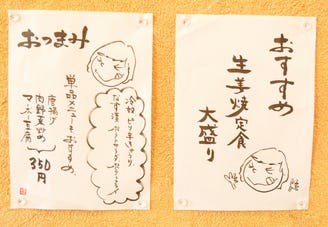 おつまみ
冷奴 ピリ辛きゅうり
なす漬
単品メニューもおすすめ。
唐揚げ
肉野菜炒め
マーボー豆腐
350円
おすすめ
生姜焼定食
大盛り